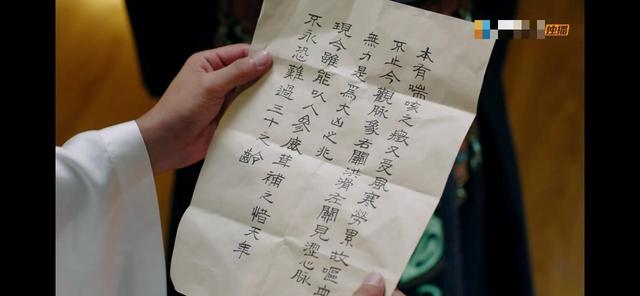 独播
本有喘咳之癥又受風寒勞累故嘔血
不止今觀脈象右關洪滑左關見澀心脈
無力是爲大凶之兆
現今雖能以人參鹿茸補之惜天年
不永恐難過三十之齡